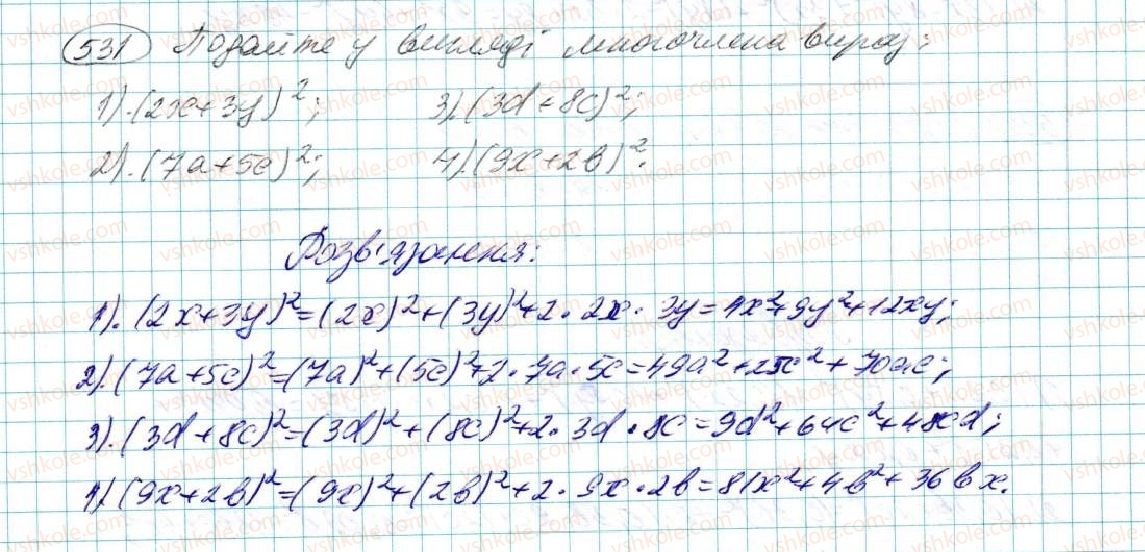 531 Подайте у вигляді многочлена вираз:
1). (2x+3y)²; 3). (3d+8c)²;
2). (7a+5c)²; 4). (9x+2в)².
Розв'язання:
1). (2x+3y)²=(2x)²+(3y)²+2·2x·3y=4x²+9y²+12xy;
2). (7a+5c)²=(7a)²+(5c)²+2·7a·5c=49a²+25c²+70ac;
3). (3d+8c)²=(3d)²+(8c)²+2·3d·8c=9d²+64c²+48cd;
4). (9x+2в)²=(9x)²+(2в)²+2·9x·2в=81x²+4в²+36вx.